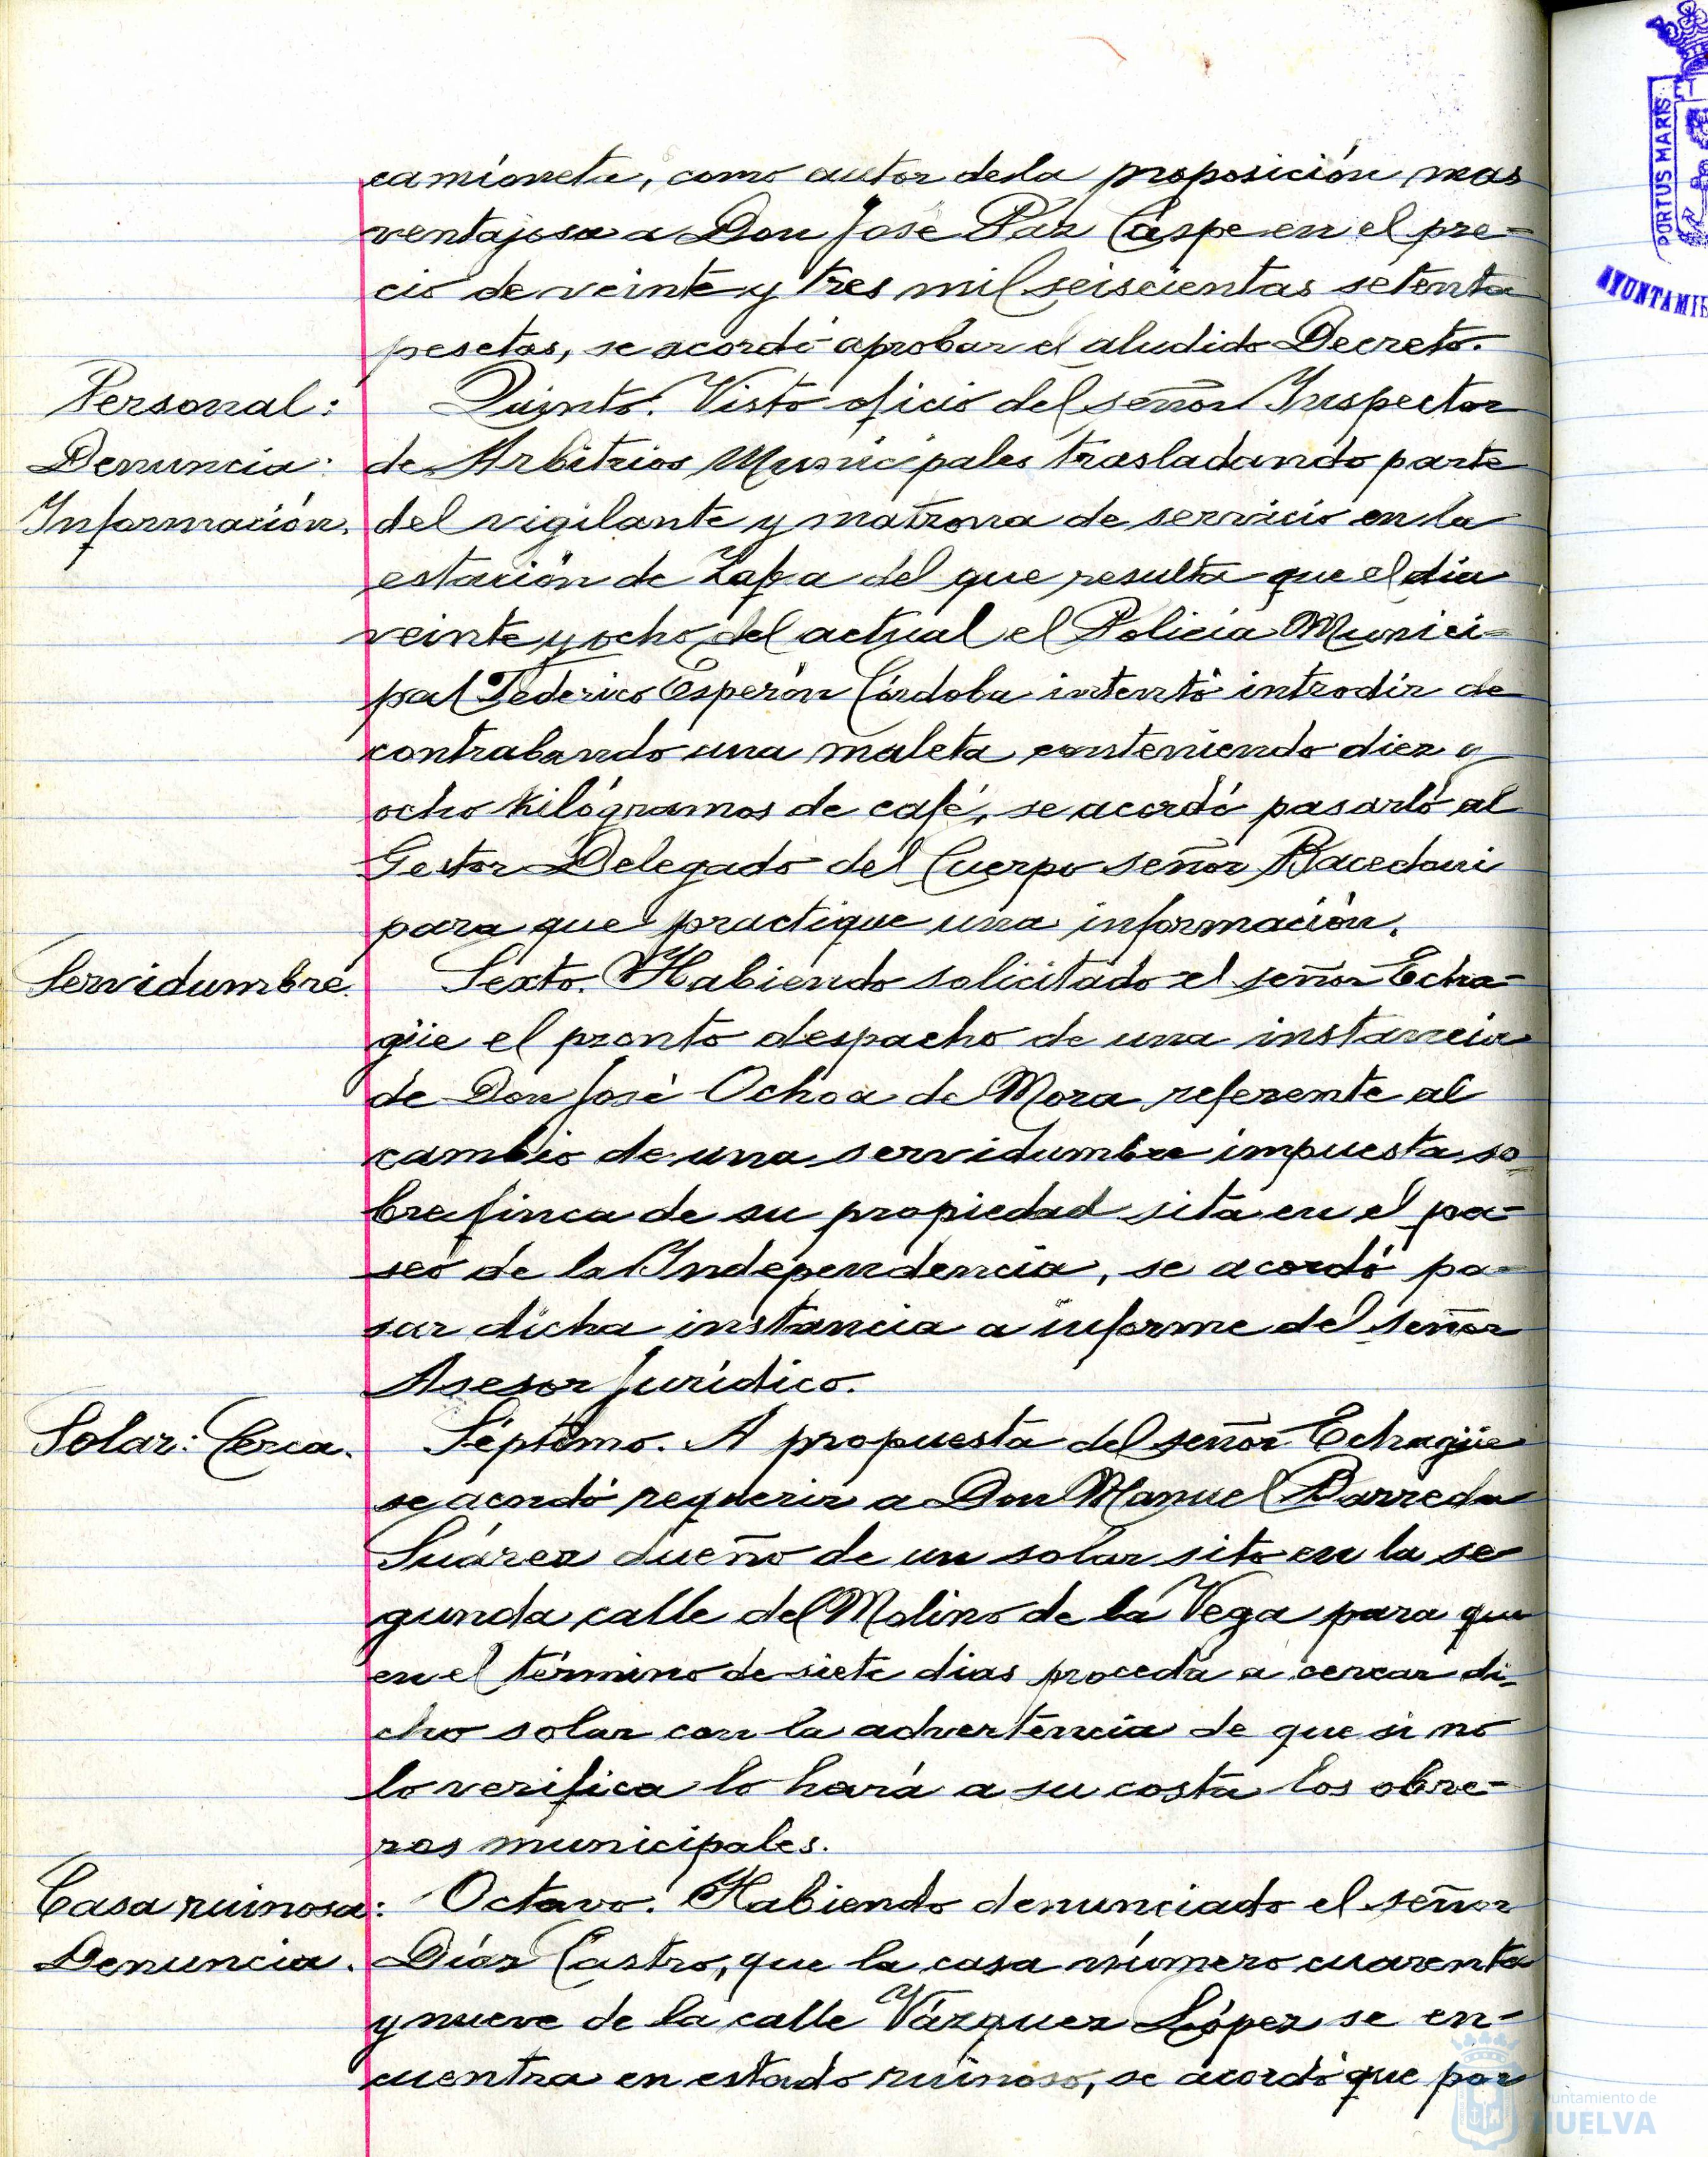 camioneta, como autor de la proposición mas
ventajosa a Don José Paz Caspe en el pre-
cio de veinte y tres mil seiscientas setenta
pesetas, se acordó aprobar el aludido Decreto.
Personal:
Denuncia:
Información.
Quinto. Visto oficio del señor Inspector
de Arbitrios Municipales trasladando parte
del vigilante y matrona de servicio en la
estación de Zafra del que resulta que el dia
veinte y ocho del actual el Policía Munici-
pal Federico Esperón Córdoba intentó introdir de
contrabando una maleta conteniendo diez y
ocho kilógramos de café, se acordó pasarló al
Gestor Delegado del Cuerpo señor
para que practique una información.
Servidumbre.
Sexto. Habiendo solicitado el señor Echa-
güe el pronto despacho de una instancia
de Don José Ochoa de Mora referente al
cambio de una servidumbre impuesta so
bre finca de su propiedad sita en el pa-
seo de la Independencia, se acordó pa-
sar dicha instancia a informe del señor
Asesor Jurídico.
Solar: Cerca.
Séptimo. A propuesta del señor Echagüe
se acordó requerir a Don Manuel Barreda
Suárez dueño de un solar sito en la se
gunda calle del Molino de la Vega para que
en el término de siete dias proceda a cercar di-
cho solar con la advertencia de que si no
lo verifica lo hará a su costa los obre-
ros municipales.
Casa ruinosa:
Denuncia.
Octavo. Habiendo denunciado el señor
Díaz Castro, que la casa número cuarenta
y nueve de la calle Vázquez López se en-
cuentra en estado ruinoso, se acordó que por
PORTUS MARIS
AYUNTAMIE
Ayuntamiento de
HUELVA